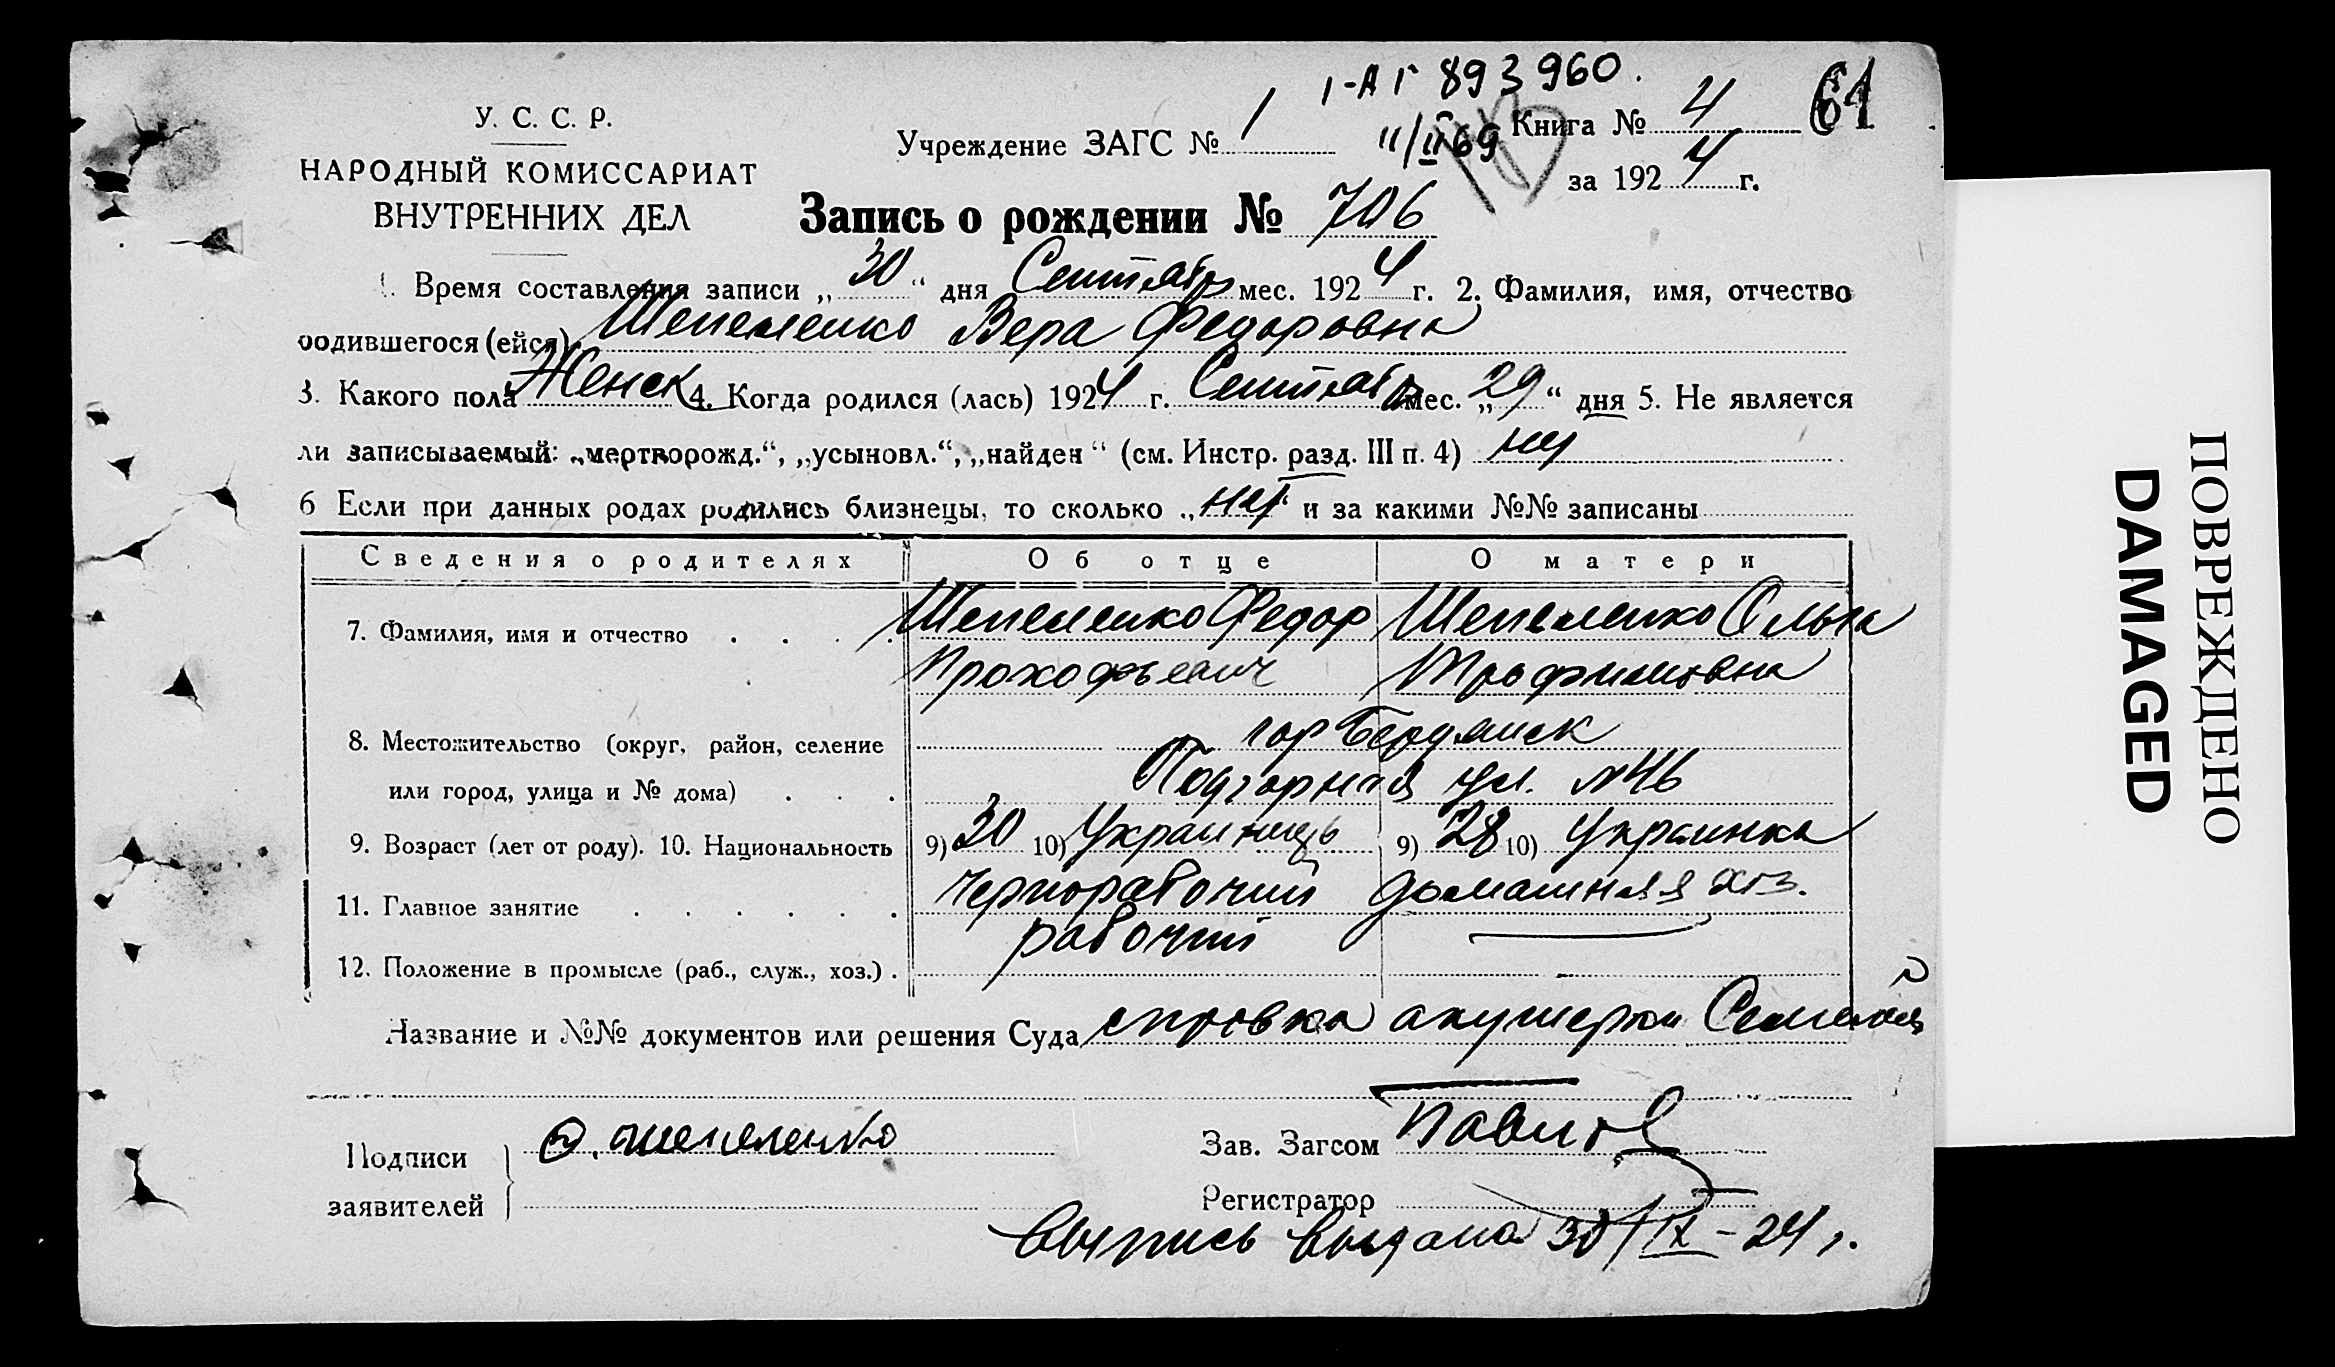 1-АГ 893960.
У. С. С. Р.
Учреждение ЗАГС № 1
11/II 69
Книга № 4
61
НАРОДНЫЙ КОМИССАРИАТ
за 1924 г.
ВНУТРЕННИХ ДЕЛ
Запись о рождении № 706
1. Время составления записи „30“ дня Сентябр мес. 1924 г. 2. Фамилия, имя, отчество
родившегося (ейся) Шепеленко Вера Федоровна
3. Какого пола Женск 4. Когда родился (лась) 1924 г. Сентябр мес. „29“ дня 5. Не является
ли записываемый: „мертворожд.“, „усыновл.“, „найден“ (см. Инстр. разд. III п. 4) нет
6 Если при данных родах родились близнецы, то сколько „нет“ и за какими №№ записаны
Сведения о родителях Об отце О матери
7. Фамилия, имя и отчество Шепеленко Федор Шепеленко Ольга
Прокофьевич Трофимовна
8. Местожительство (округ, район, селение гор Бердянск
или город, улица и № дома) Подгорная ул. №46
9. Возраст (лет от роду). 10. Национальность 9) 30 10) Украинець 9) 28 10) Украинка
11. Главное занятие Чернорабочий домашняя хоз.
12. Положение в промысле (раб., служ., хоз.) рабочий
Название и №№ документов или решения Суда справка акушерки
Подписи
заявителей
О. Шепеленко
Зав. Загсом Павлов
Регистратор
Выпись выдана 30/IX-24 г.
ПОВРЕЖДЕНО
DAMAGED